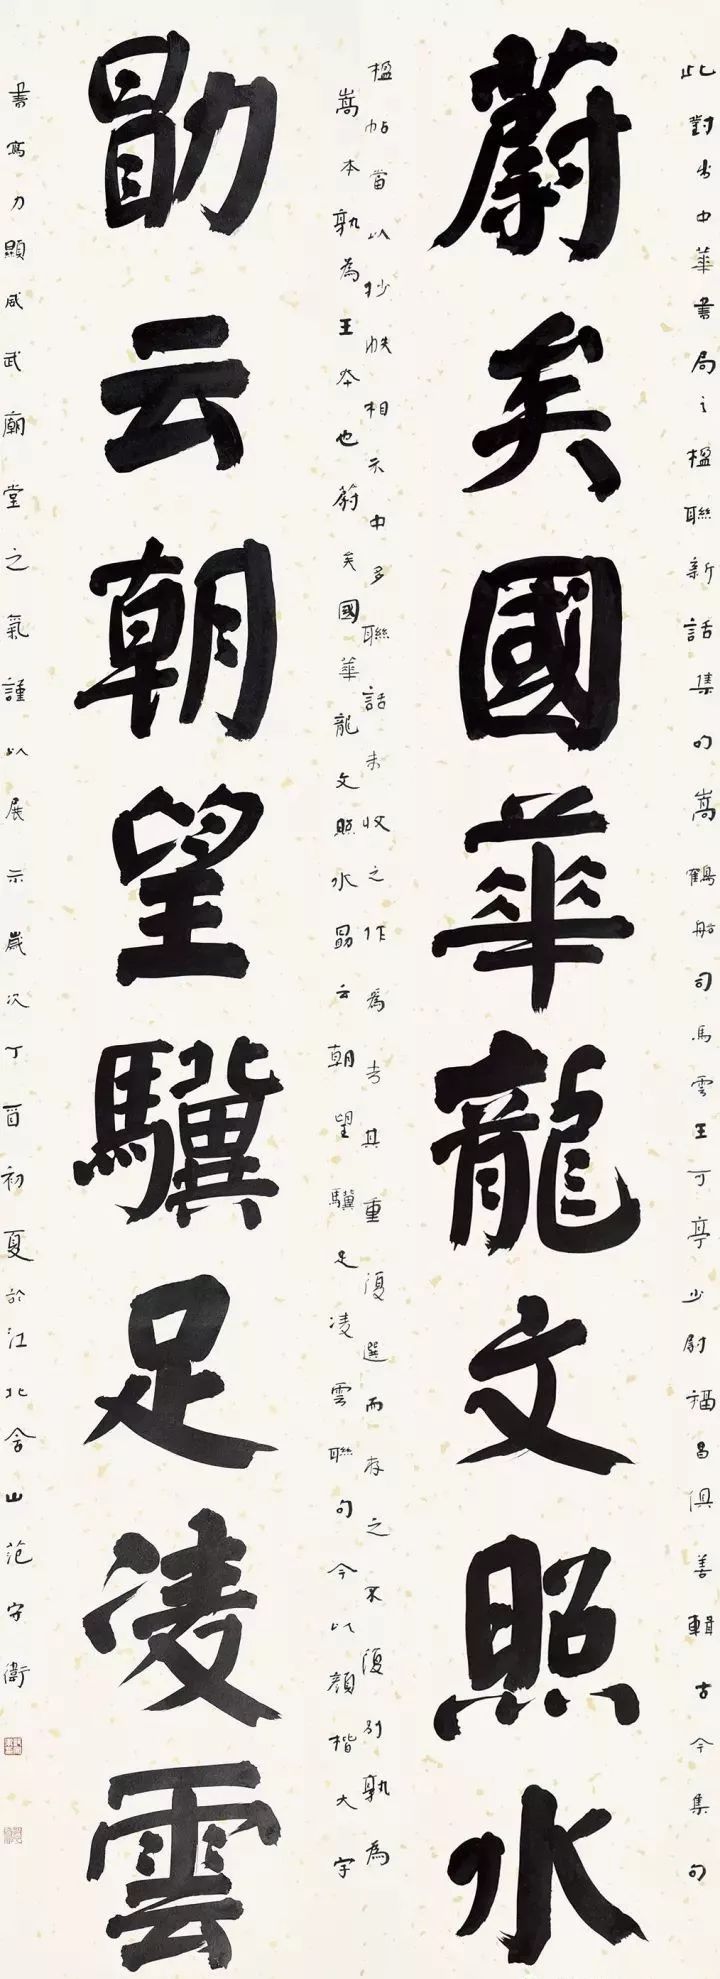 此對出中華書局之楹聯新話集句嵩鶴船司馬雲王丁亭少尉福昌俱善輯古今集句
蔚矣國華龍文照水
楹帖當以抄帙相示中多聯話未收之作為考其重復選而存之不復別孰為
嵩本孰為王本也蔚矣國華龍文照水勖云朝望驥足凌雲聯句今以顏楷大字
勖云朝望驥足凌雲
書寫力顯威武廟堂之氣謹以展示歲次丁酉初夏於江北含山范守衛